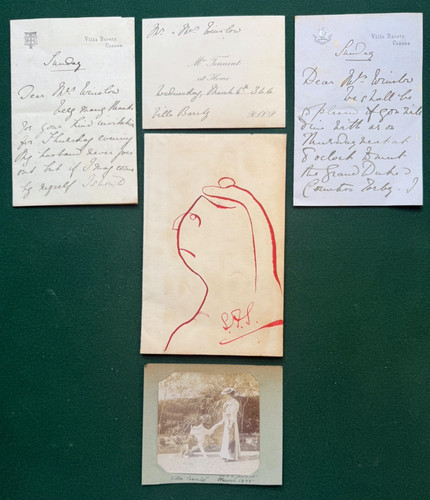 Villa Barety,
Cannes
Sunday
Dear Mrs Winslow
Very many thanks
for your kind invitation
for Thursday evening
My husband never goes
out but if I may come
by myself I should
Mr. Mrs Winslow
Mrs Tennant
at Home
Wednesday, March 6th 3 to 6
Villa Barety
R.S.V.P.
Villa Barety,
Cannes
Sunday
Dear Mrs Winslow
We shall be
so pleased if you will
dine with us on
Thursday next at
8 o'clock to meet
the Grand Duke &
Countess Torby. I
S.F.S.
Villa
March